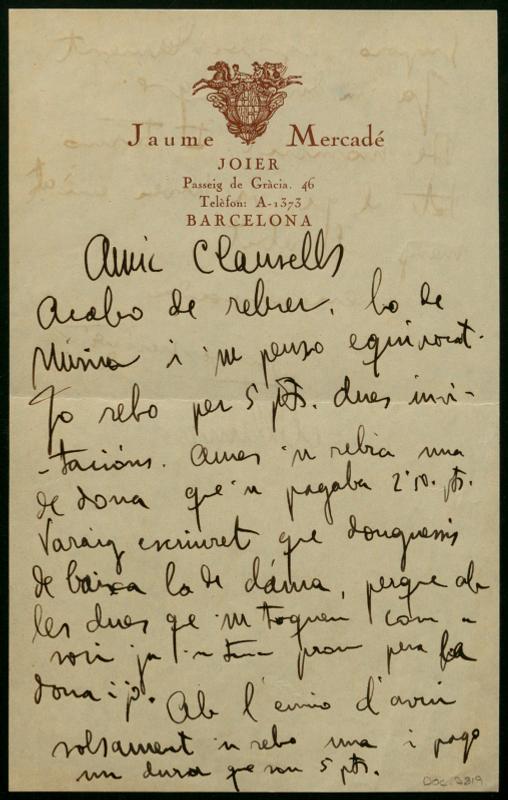 Jaume Mercadé
JOIER
Passeig de Gràcia, 46
Telèfon: A-1373
BARCELONA
Amic Clausells
Acabo de rebrer, lo de
Música i 'm penso equivocat.
Jo rebo per 5 pts. dues invi-
-tacións. Ames 'n rebia una
de dona que 'n pagaba 2'50. pts.
Varaig escriuret que donguessis
de baixa la de dama, perque ab
les dues que 'm toquen com a
soci ja 'n tinc prou pera la
dona i jo. Ab l'envio d'avui
solsament 'n rebo una i pago
un duro que son 5 pts.
DOC-3819